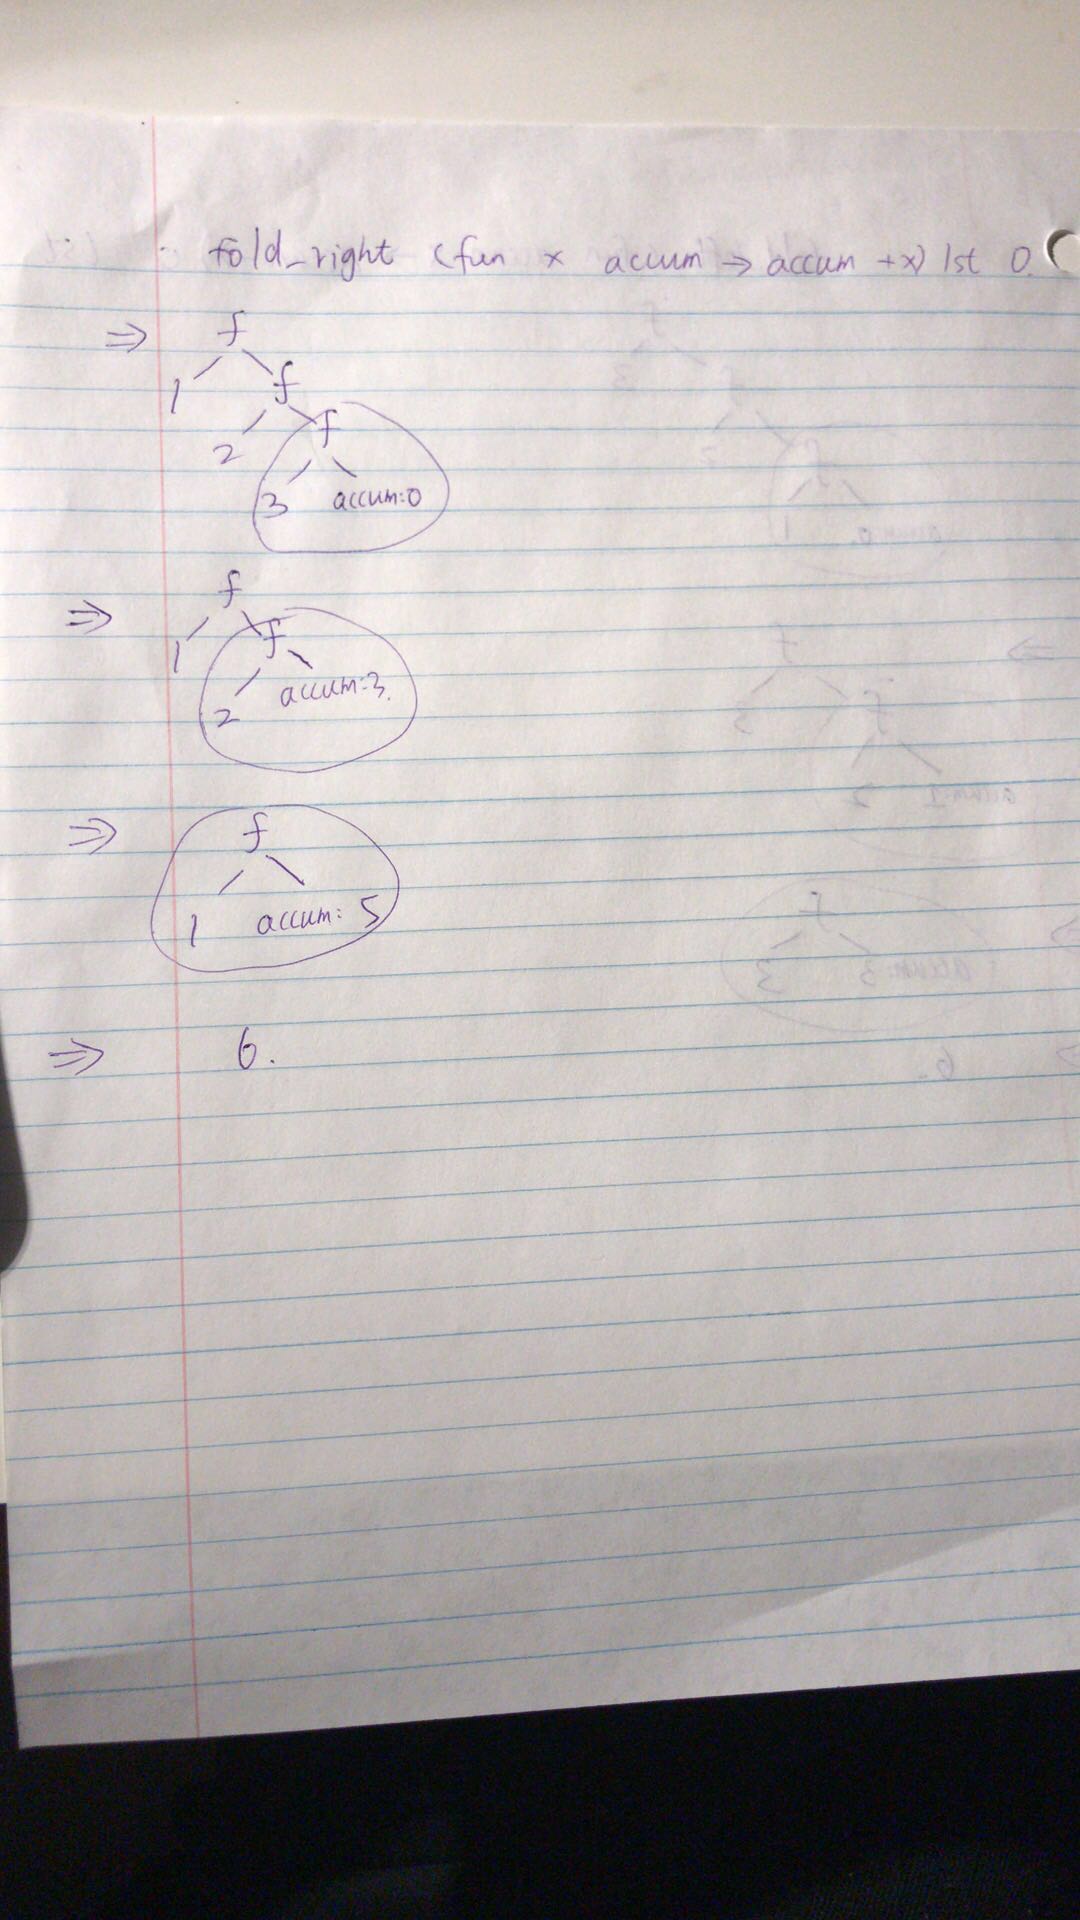 fold_right (fun x accum → accum +x) lst 0.
⇒ f
1 f
2 f
3 accum:0
⇒ f
1 f
2 accum:3.
⇒ f
1 accum: 5
⇒ 6.